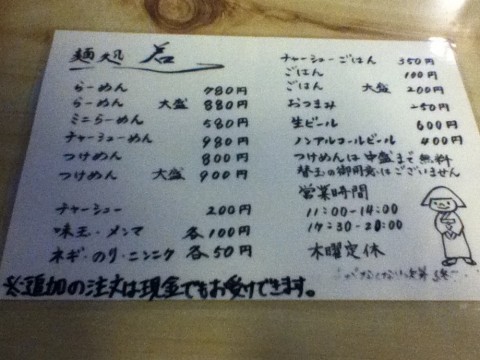 麺処 君
らーめん 780円
らーめん 大盛 880円
ミニらーめん 580円
チャーシューめん 980円
つけめん 800円
つけめん 大盛 900円
チャーシュー 200円
味玉・メンマ 各100円
ネギ・のり・ニンニク 各50円
チャーシューごはん 350円
ごはん 100円
ごはん 大盛 200円
おつまみ 250円
生ビール 600円
ノンアルコールビール 400円
つけめんは中盛まで無料
替玉の御用意はございません
営業時間
11:00-14:00
17:30-20:00
木曜定休
がなくなり次第
※追加の注文は現金でもお受けできます。